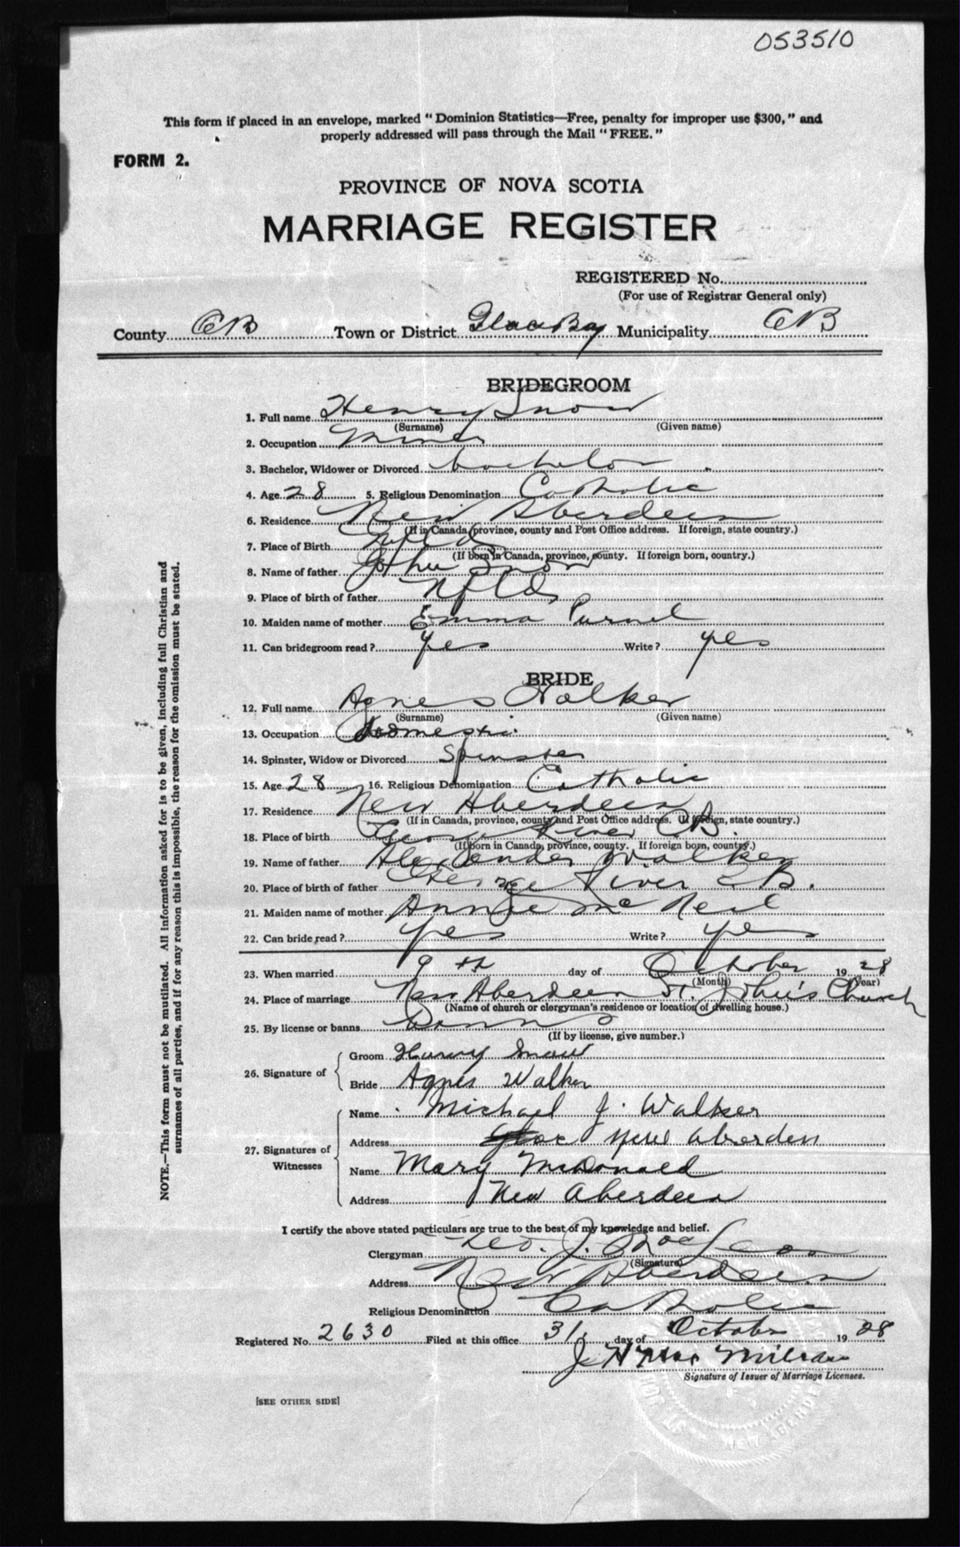 053510
This form if placed in an envelope, marked "Dominion Statistics—Free, penalty for improper use $300," and
properly addressed will pass through the Mail "FREE."
FORM 2.
PROVINCE OF NOVA SCOTIA
MARRIAGE REGISTER
REGISTERED No.
(For use of Registrar General only)
County CB Town or District Glace Bay Municipality CB
BRIDEGROOM
1. Full name Henry Snow
(Surname) (Given name)
2. Occupation Miner
3. Bachelor, Widower or Divorced bachelor
4. Age 28 5. Religious Denomination Catholic
6. Residence New Aberdeen
(If in Canada, province, county and Post Office address. If foreign, state country.)
7. Place of Birth Nfld
(If born in Canada, province, county. If foreign born, country.)
8. Name of father John Snow
9. Place of birth of father Nfld
10. Maiden name of mother Emma Purnel
11. Can bridegroom read? yes Write? yes
BRIDE
12. Full name Agnes Walker
(Surname) (Given name)
13. Occupation Domestic
14. Spinster, Widow or Divorced Spinster
15. Age 28 16. Religious Denomination Catholic
17. Residence New Aberdeen
(If in Canada, province, county and Post Office address. If foreign, state country.)
18. Place of birth George River CB.
(If born in Canada, province, county. If foreign born, country.)
19. Name of father Alexander Walker
20. Place of birth of father George River CB.
21. Maiden name of mother Annie McNeil
22. Can bride read? yes Write? yes
23. When married 9th day of October 1928
(Month) (Year)
24. Place of marriage New Aberdeen St. John's Church
(Name of church or clergyman's residence or location of dwelling house.)
25. By license or banns Banns
(If by license, give number.)
26. Signature of Groom Henry Snow
Bride Agnes Walker
27. Signatures of Witnesses Name Michael J. Walker
Address New Aberdeen
Name Mary McDonald
Address New Aberdeen
I certify the above stated particulars are true to the best of my knowledge and belief.
Clergyman Geo. J. MacLean
(Signature)
Address New Aberdeen
Religious Denomination Catholic
Registered No. 2630 Filed at this office 31 day of October 1928
J H
Signature of Issuer of Marriage Licenses.
[SEE OTHER SIDE]
NOTE.—This form must not be mutilated. All information asked for is to be given, including full Christian and
surnames of all parties, and if for any reason this is impossible, the reason for the omission must be stated.